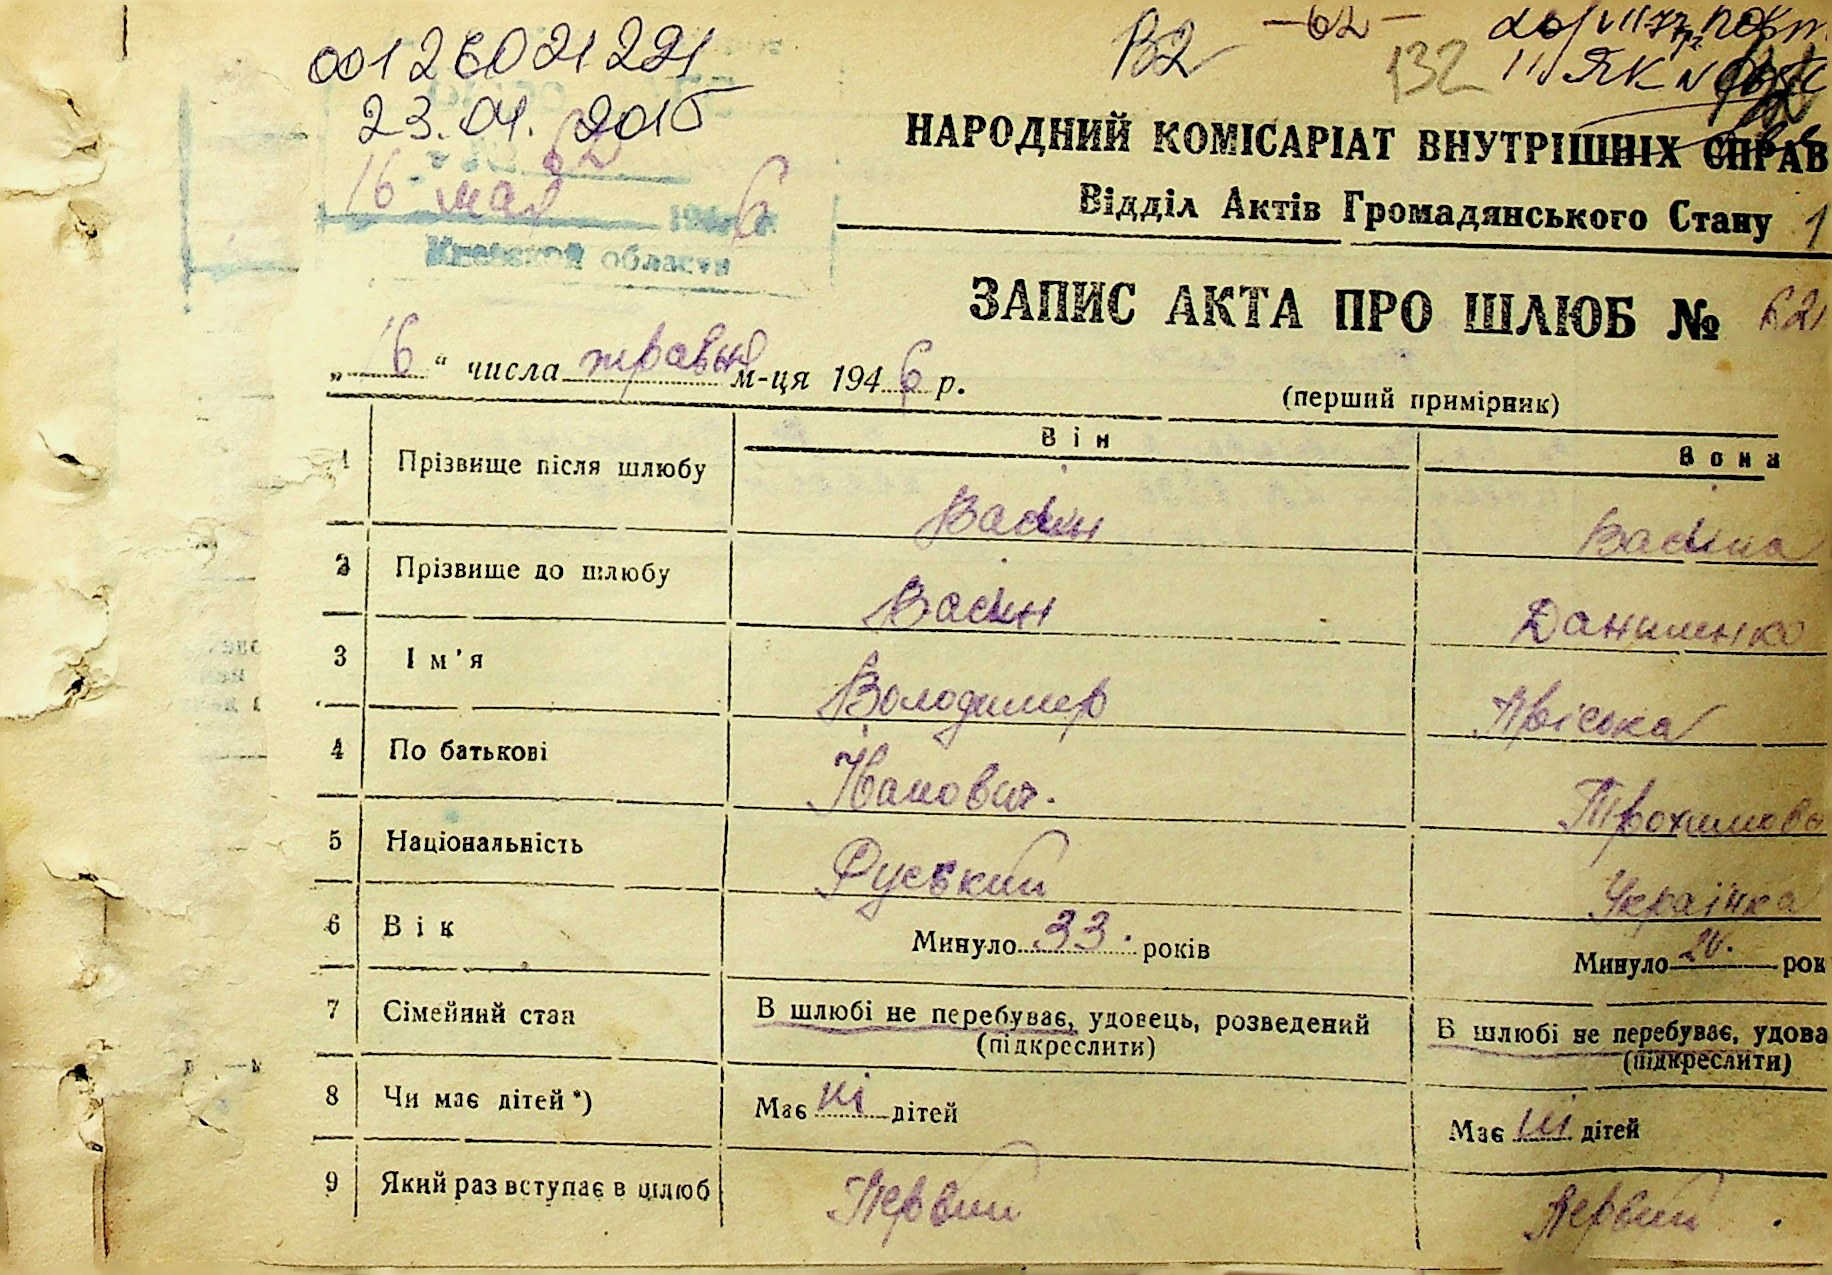 00126021221
23.04.2015
62
16 мая 1946 г.
Киевской области
В2 -62-
132
НАРОДНИЙ КОМІСАРІАТ ВНУТРІШНІХ СПРАВ
Відділ Актів Громадянського Стану 1
ЗАПИС АКТА ПРО ШЛЮБ № 62
„16“ числа травня м-ця 1946 р.
(перший примірник)
Він Вона
1 Прізвище після шлюбу Васін Васіна
2 Прізвище до шлюбу Васін Даниленко
3 Ім'я Володимер
4 По батькові Трохимовн
5 Національність Руський Українка
6 Вік Минуло 33. років Минуло 20. рок
7 Сімейний стан В шлюбі не перебуває, удовець, розведений В шлюбі не перебуває, удова
(підкреслити) (підкреслити)
8 Чи має дітей *) Має ні дітей Має ні дітей
9 Який раз вступає в шлюб Первий Первий